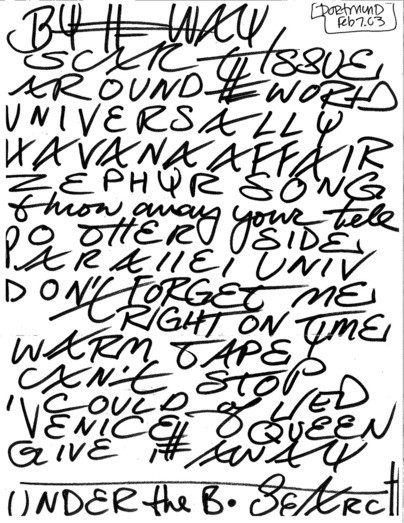 DORTMUND
Feb 7.03
BY the WAY
SCAR TISSUE
AROUND the WORLD
UNIVERSALLY
HAVANA AFFAIR
ZEPHYR SONG
throw away your tele
OTHER SIDE
PARALLEL UNIV
DON'T FORGET ME
RIGHT ON TIME
WARM TAPE
CAN'T STOP
I COULD LIED
VENICE QUEEN
GIVE it AWAY
UNDER the B. SEARCH